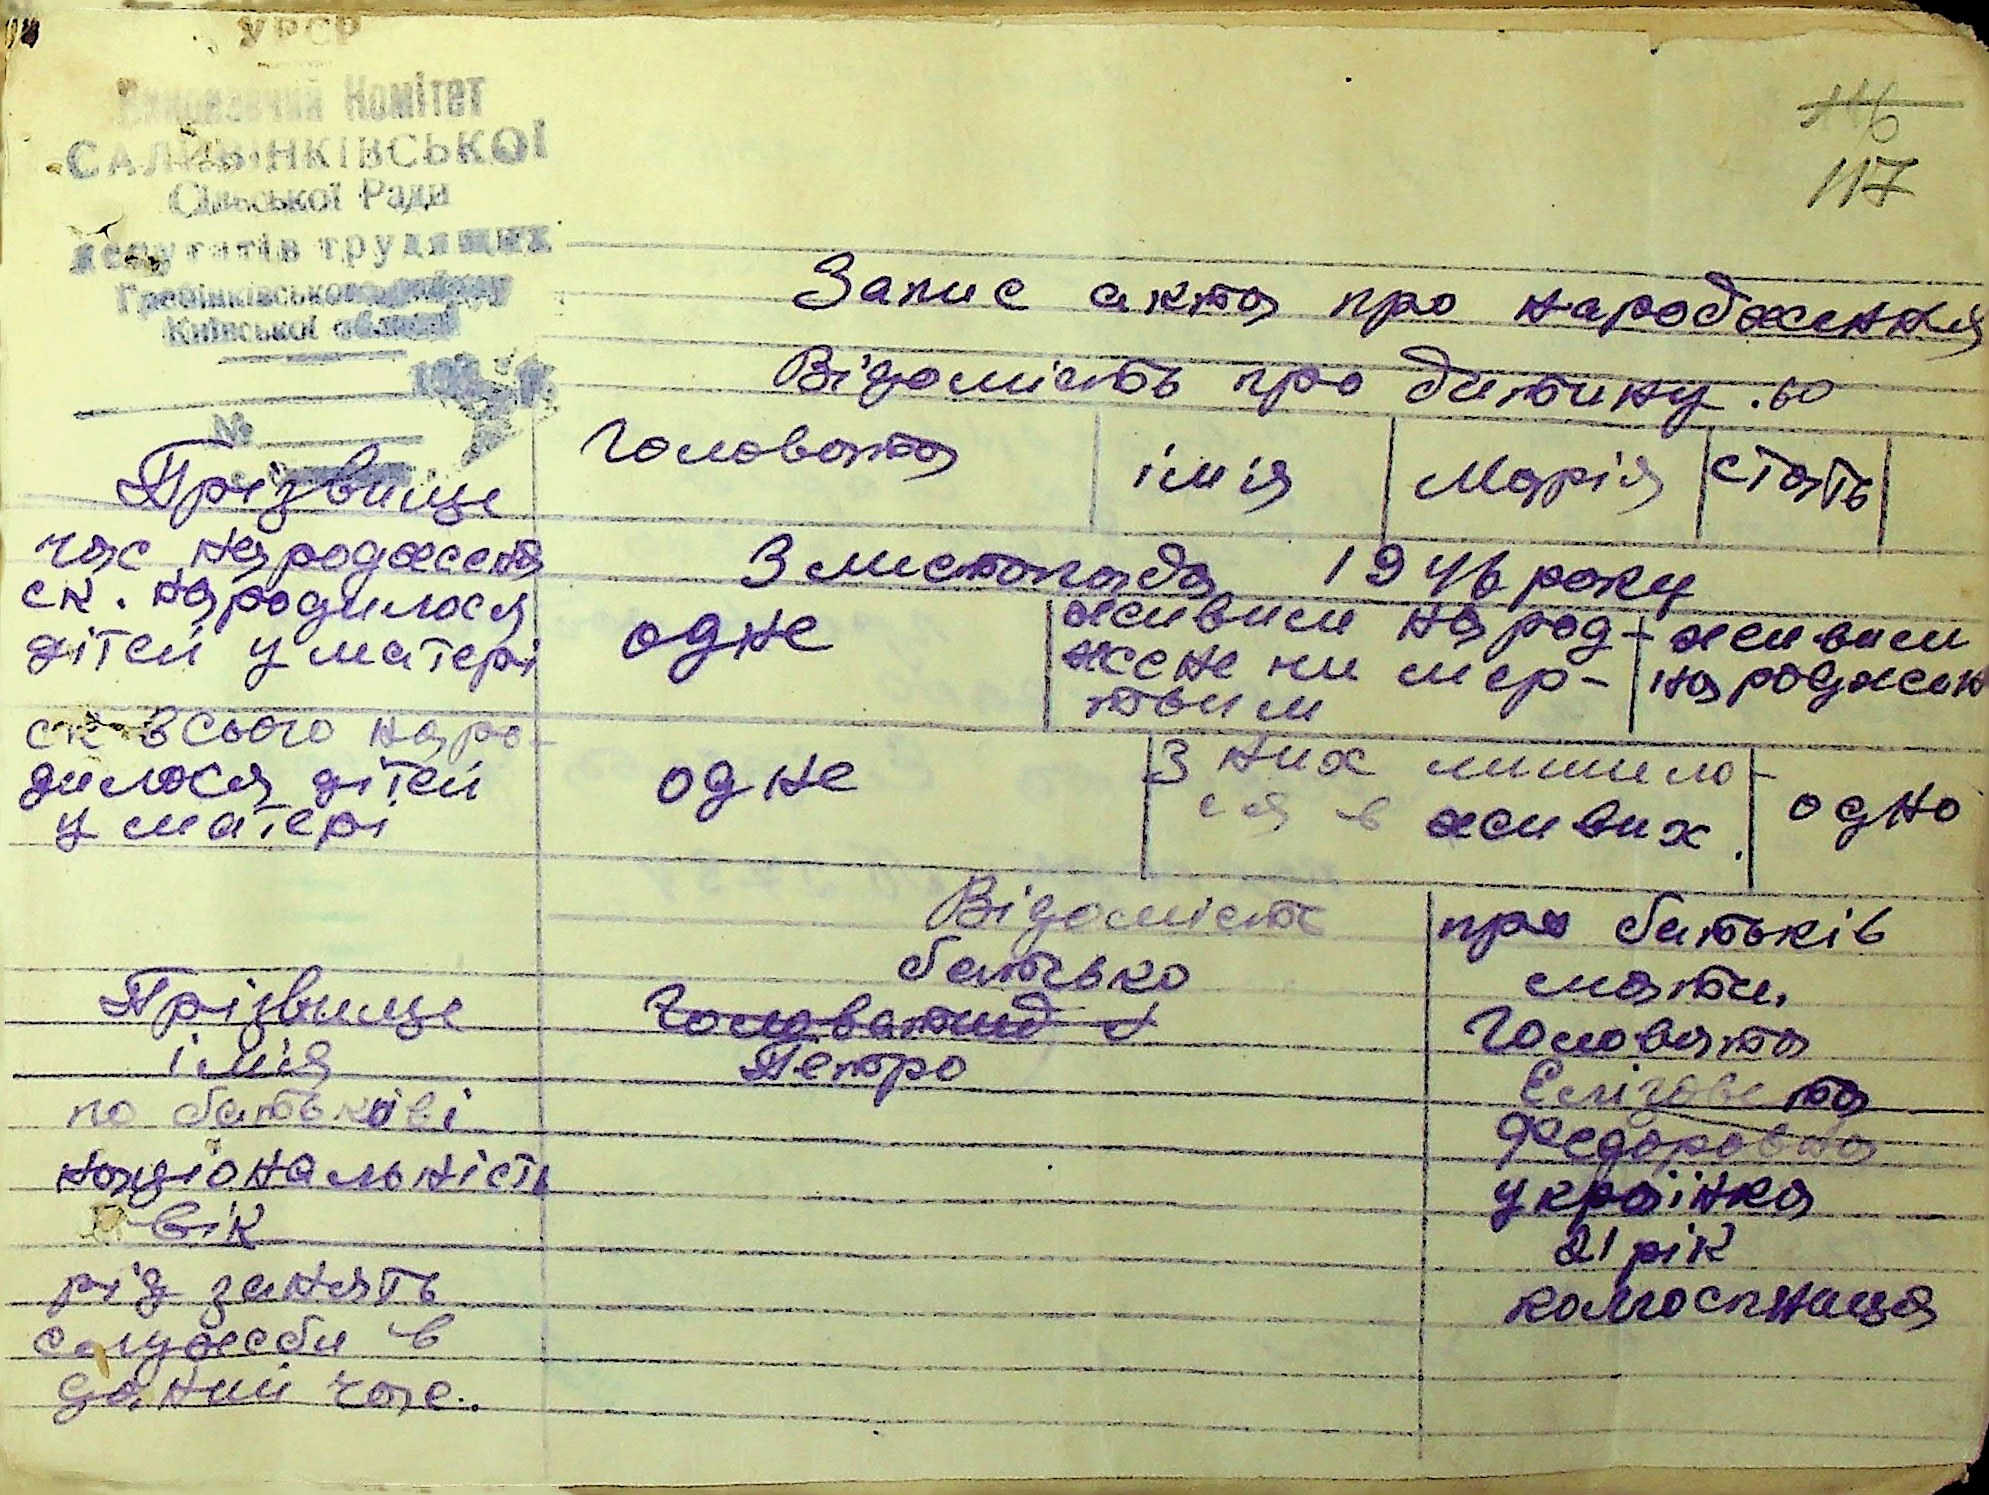 УРСР
Виконавчий Комітет
САЛИВІНКІВСЬКОЇ
Сільської Ради
депутатів трудящих
Гребінківського району
Київської області
№
116
117
Запис акта про народження
Відомість про дитину.
Прізвище
Головата
імія
Марія
стать
час народження
3 листопада 1946 року
ск. народилося
дітей у матері
одне
живим народ-
жене чи мер-
твим
живим
народжен
ск всього наро-
дилося дітей
у матері
одне
З них лишило-
ся в живих.
одно
Відомість про батьків
батько
мати.
Прізвище
Головатий
Головата
імія
Петро
Елізавета
по батькові
Федоровна
національність
українка
вік
21 рік
рід занять
колгоспниця
служби в
даний час.